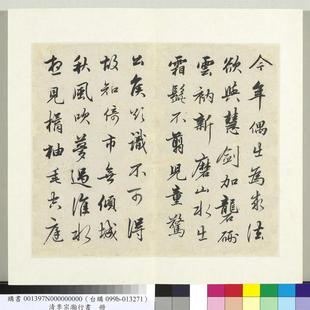 今年偶出為求法
欲與慧劍加礱硎
雲衲新磨山水出
霜髭不剪兒童驚
公侯欲識不可得
故知倚市無傾城
秋風吹夢過淮水
想見橘柚垂空庭
購書 001397N000000000 (台購 099b-013271)
清李宗瀚行書 冊